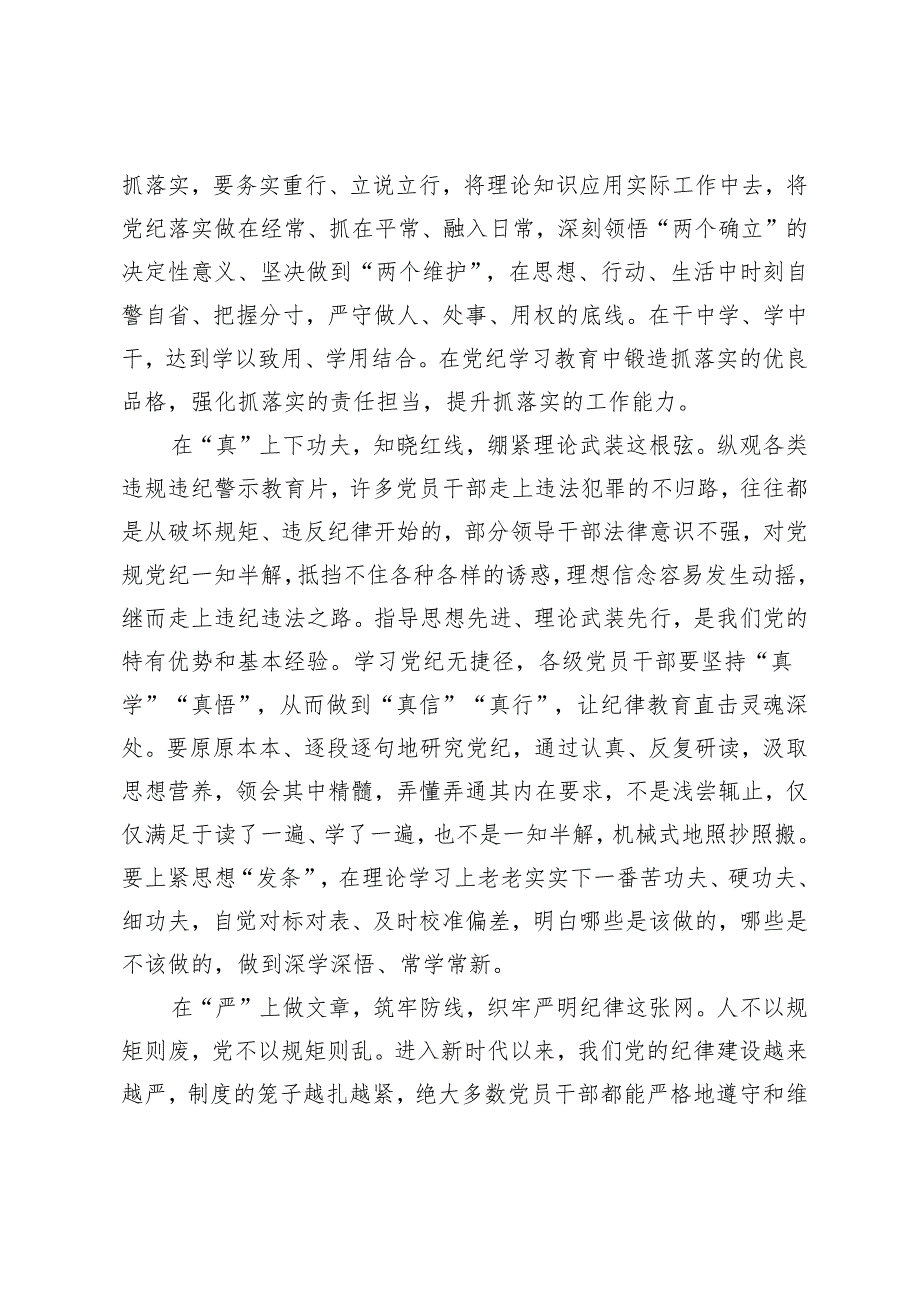 抓落实，要务实重行、立说立行，将理论知识应用实际工作中去，将
党纪落实做在经常、抓在平常、融入日常，深刻领悟“两个确立”的
决定性意义、坚决做到“两个维护”，在思想、行动、生活中时刻自
警自省、把握分寸，严守做人、处事、用权的底线。在干中学、学中
干，达到学以致用、学用结合。在党纪学习教育中锻造抓落实的优良
品格，强化抓落实的责任担当，提升抓落实的工作能力。
在“真”上下功夫，知晓红线，绷紧理论武装这根弦。纵观各类
违规违纪警示教育片，许多党员干部走上违法犯罪的不归路，往往都
是从破坏规矩、违反纪律开始的，部分领导干部法律意识不强，对党
规党纪一知半解，抵挡不住各种各样的诱惑，理想信念容易发生动摇，
继而走上违纪违法之路。指导思想先进、理论武装先行，是我们党的
特有优势和基本经验。学习党纪无捷径，各级党员干部要坚持“真
学”“真悟”，从而做到“真信”“真行”，让纪律教育直击灵魂深
处。要原原本本、逐段逐句地研究党纪，通过认真、反复研读，汲取
思想营养，领会其中精髓，弄懂弄通其内在要求，不是浅尝辄止，仅
仅满足于读了一遍、学了一遍，也不是一知半解，机械式地照抄照搬。
要上紧思想“发条”，在理论学习上老老实实下一番苦功夫、硬功夫、
细功夫，自觉对标对表、及时校准偏差，明白哪些是该做的，哪些是
不该做的，做到深学深悟、常学常新。
在“严”上做文章，筑牢防线，织牢严明纪律这张网。人不以规
矩则废，党不以规矩则乱。进入新时代以来，我们党的纪律建设越来
越严，制度的笼子越扎越紧，绝大多数党员干部都能严格地遵守和维